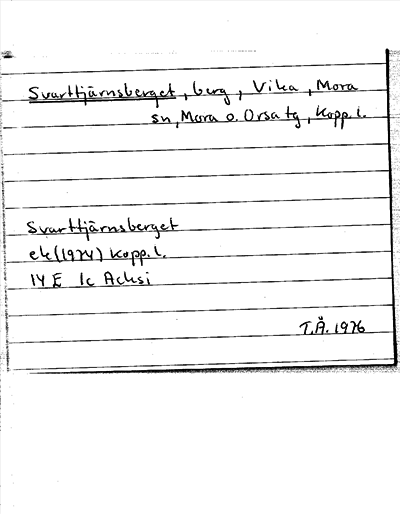 Svarttjärnsberget, berg, Vika, Mora
sn, Mora o. Orsa tg, Kopp. l.
Svarttjärnsberget
ek (1974) Kopp. l.
14 E 1c Acksi
T.Å. 1976